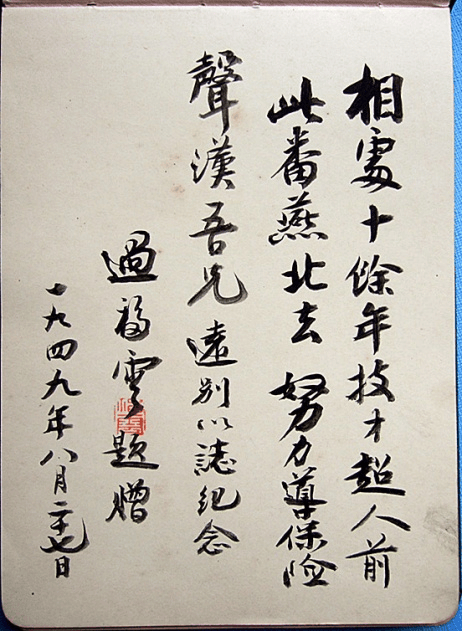 相處十餘年技才超人前
此番燕北去努力導保险
聲漢吾兄遠別以誌紀念
過福雲題贈
一九四九年八月二十七日